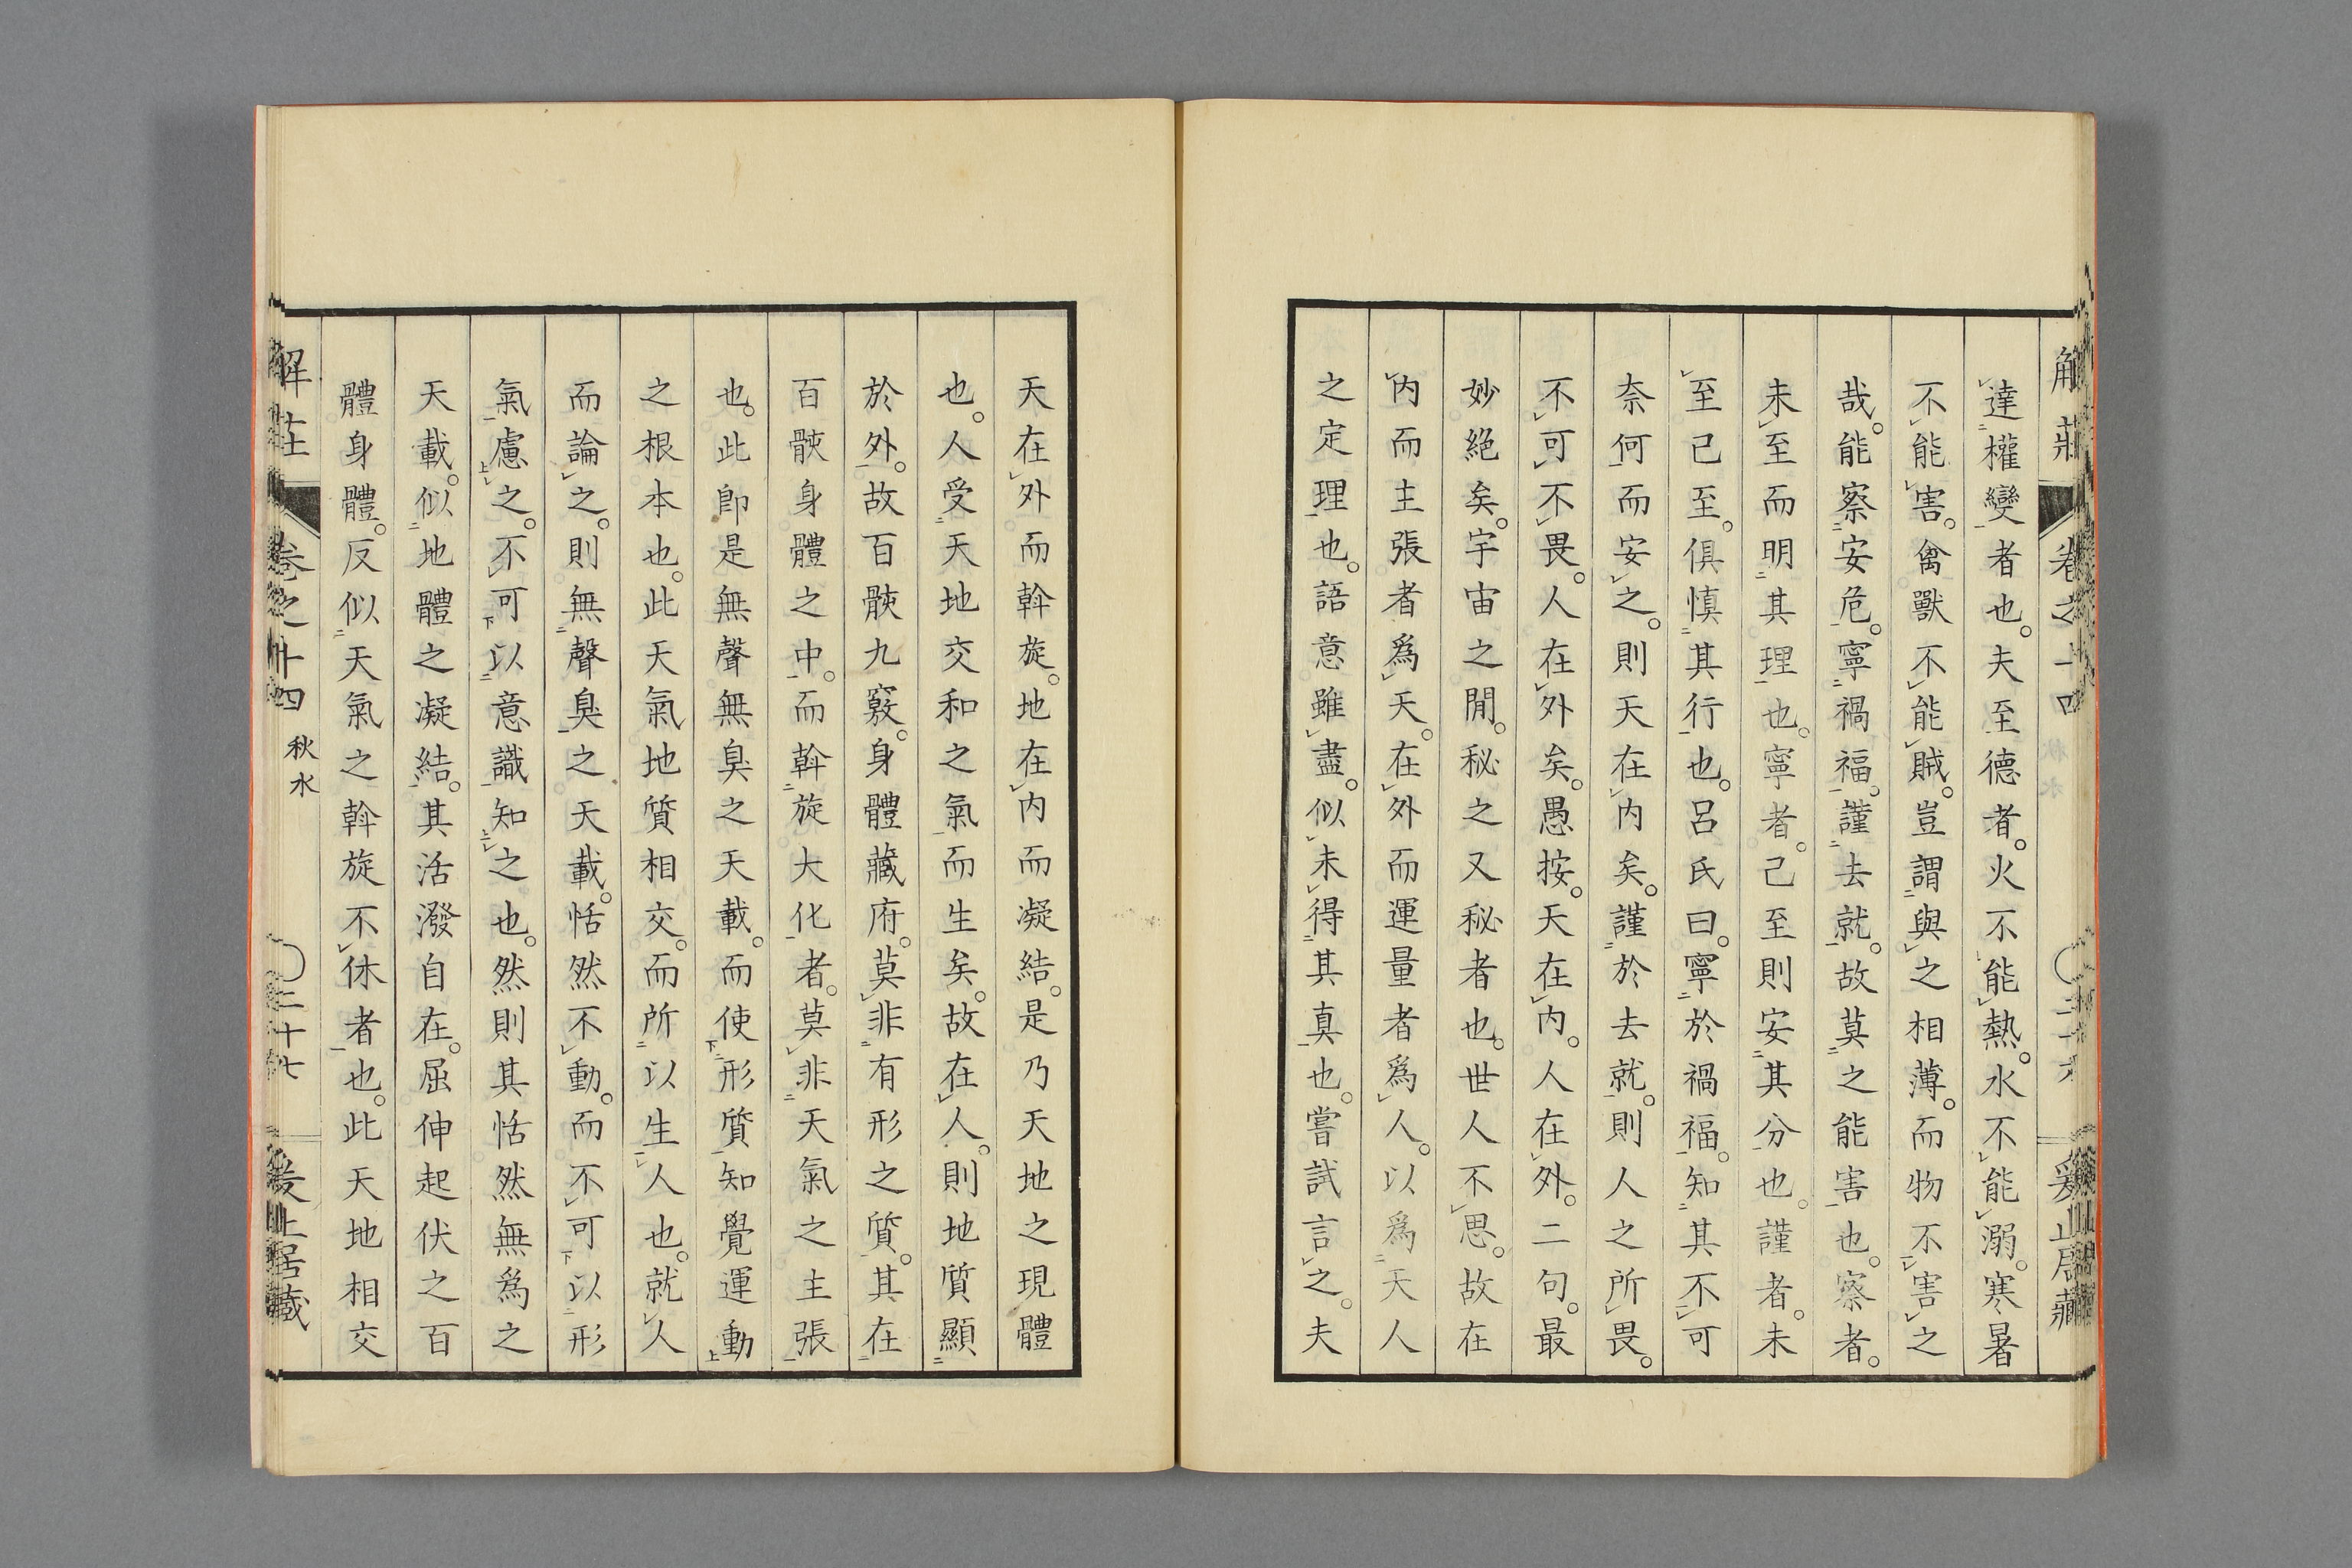 解莊 卷之十四 秋水 二十六 爰止居藏
達權變者也。夫至德者。火不能熱。水不能溺。寒暑
不能害。禽獸不能賊。豈謂與之相薄。而物不害之
哉。能察安危。寧禍福。謹去就。故莫之能害也。察者。
未至而明其理也。寧者。己至則安其分也。謹者。未
至已至。俱慎其行也。呂氏曰。寧於禍福。知其不可
奈何而安之。則天在内矣。謹於去就。則人之所畏。
不可不畏。人在外矣。愚按。天在内。人在外。二句。最
妙絕矣。宇宙之閒。秘之又秘者也。世人不思。故在
内而主張者爲天。在外而運量者爲人。以爲天人
之定理也。語意雖盡。似未得其真也。嘗試言之。夫
天在外而斡旋。地在内而凝結。是乃天地之現體
也。人受天地交和之氣而生矣。故在人。則地質顯
於外。故百骸九竅。身體藏府。莫非有形之質。其在
百骸身體之中。而斡旋大化者。莫非天氣之主張
也。此卽是無聲無臭之天載。而使形質知覺運動
之根本也。此天氣地質相交。而所以生人也。就人
而論之。則無聲臭之天載。恬然不動。而不可以形
氣慮之。不可以意識知之也。然則其恬然無爲之
天載。似地體之凝結。其活潑自在。屈伸起伏之百
體身體。反似天氣之斡旋不休者也。此天地相交
解莊 卷之十四 秋水 二十七 爰止居藏